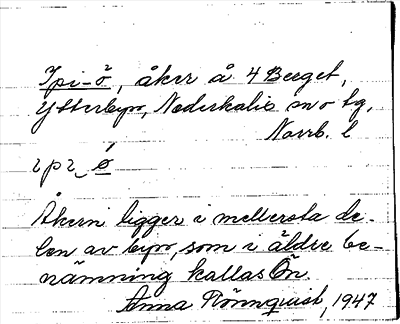 Ipi-ö, åker å 4 Berget,
Ytterbyn, Nederkalix sn o tg,
Norrb. l
ɩpɩ_ ǿ
Åkern ligger i mellersta de-
len av byn, som i äldre be-
nämning kallas Ön.
Anna Rönnquist, 1947